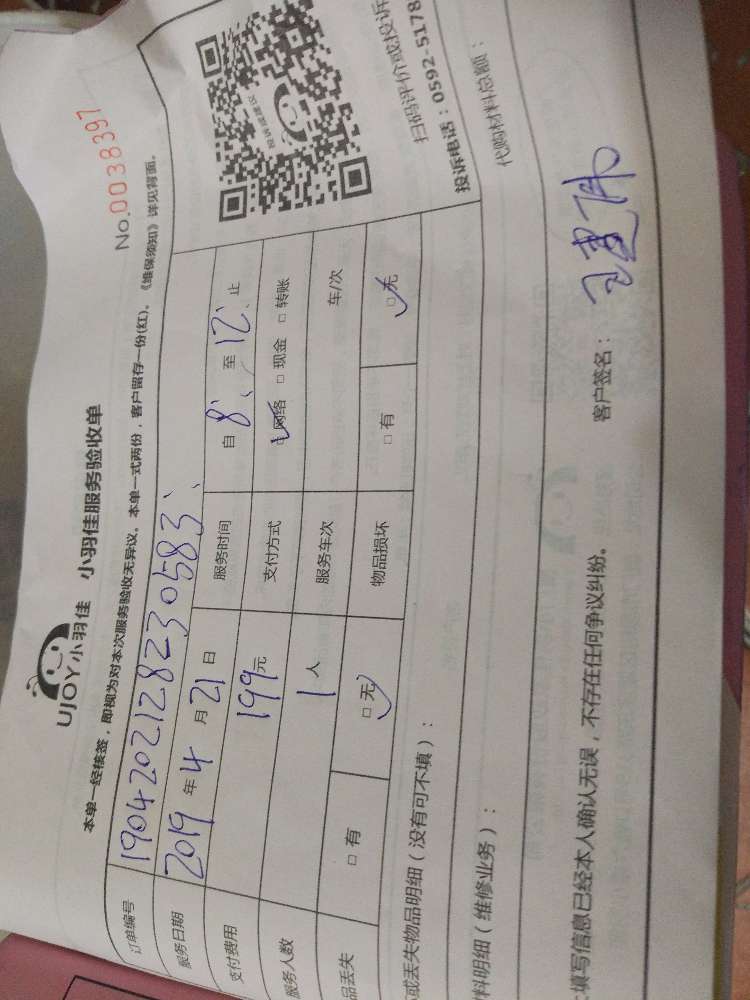 UJOY小羽佳 小羽佳服务验收单
No.0038397
本单一经核签，即视为对本次服务验收无异议。本单一式两份，客户留存一份(红)。《维保须知》详见背面。
订单编号 190420212823058​3
服务日期 2019年4月21日 服务时间 自8、至12、止
支付费用 199元 支付方式 □网络 □现金 □转账
服务人数 1人 服务车次 车/次
品丢失 □有 □无 物品损坏 □有 □无
扫码评价或投诉
投诉电话：0592-5178
或丢失物品明细（没有可不填）：
料明细（维修业务）： 代购材料总额：
填写信息已经本人确认无误，不存在任何争议纠纷。 客户签名：